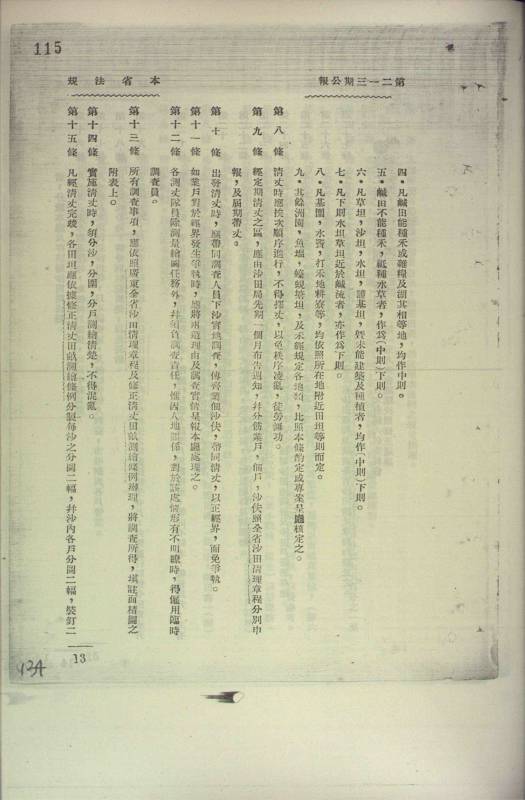 115
本省法規
第二一三期公報
四・凡鹹田能種禾或雜糧及謂其相等地,均作中則。
五・鹹田不能種禾,祗種水草者,作為(中則)下則。
六・凡草坦,沙坦,水坦,
暨未能建築及種植者,均作(中則)下則。
七・凡下則水坦草坦近於鹹流者,亦作為下則。
八・凡基圍,水竇,打禾地耕寮等,均依照所在地附近田坦等則而定。
九・其餘洲園,魚塭,蠔蜆塋坦,及未經規定各地類,比照本條酌定或專案呈廳核定之。
第八條 清丈時應挨次順序進行,不得擇丈,以免秩序凌亂,徒勞無功。
第九條 經定期清丈之區,應由沙田局先期一個月布告週知,幷分飭業戶,佃戶,沙伕照全省沙田清理章程分別申
報,及屆期帶丈。
第十條 出發清丈時,應帶同調查人員下沙實地調查,傳齊業佃沙伕,帶同清丈,以正經界,而免爭執。
第十一條 如業戶對於經界發生爭執時,應將兩造理由及調查實情呈報本廳處理之。
第十二條 各測丈隊員除測量繪圖任務外,幷須負調查責任,惟因人地關係,對於該處情形有不明瞭時,得僱用臨時
調查員。
第十三條 所有調查事項,應依照廣東全省沙田清理章程及修正清丈田畝測繪條例辦理,將調查所得,填註而精圖之
附表上。
第十四條 實施清丈時,須分沙,分圍,分戶測繪清楚,不得混亂。
第十五條 凡經清丈完竣,各田坦應依據修正清丈田畝測繪條例分製每沙之分圖二幅,幷沙內各戶分圖二幅,裝釘二
13